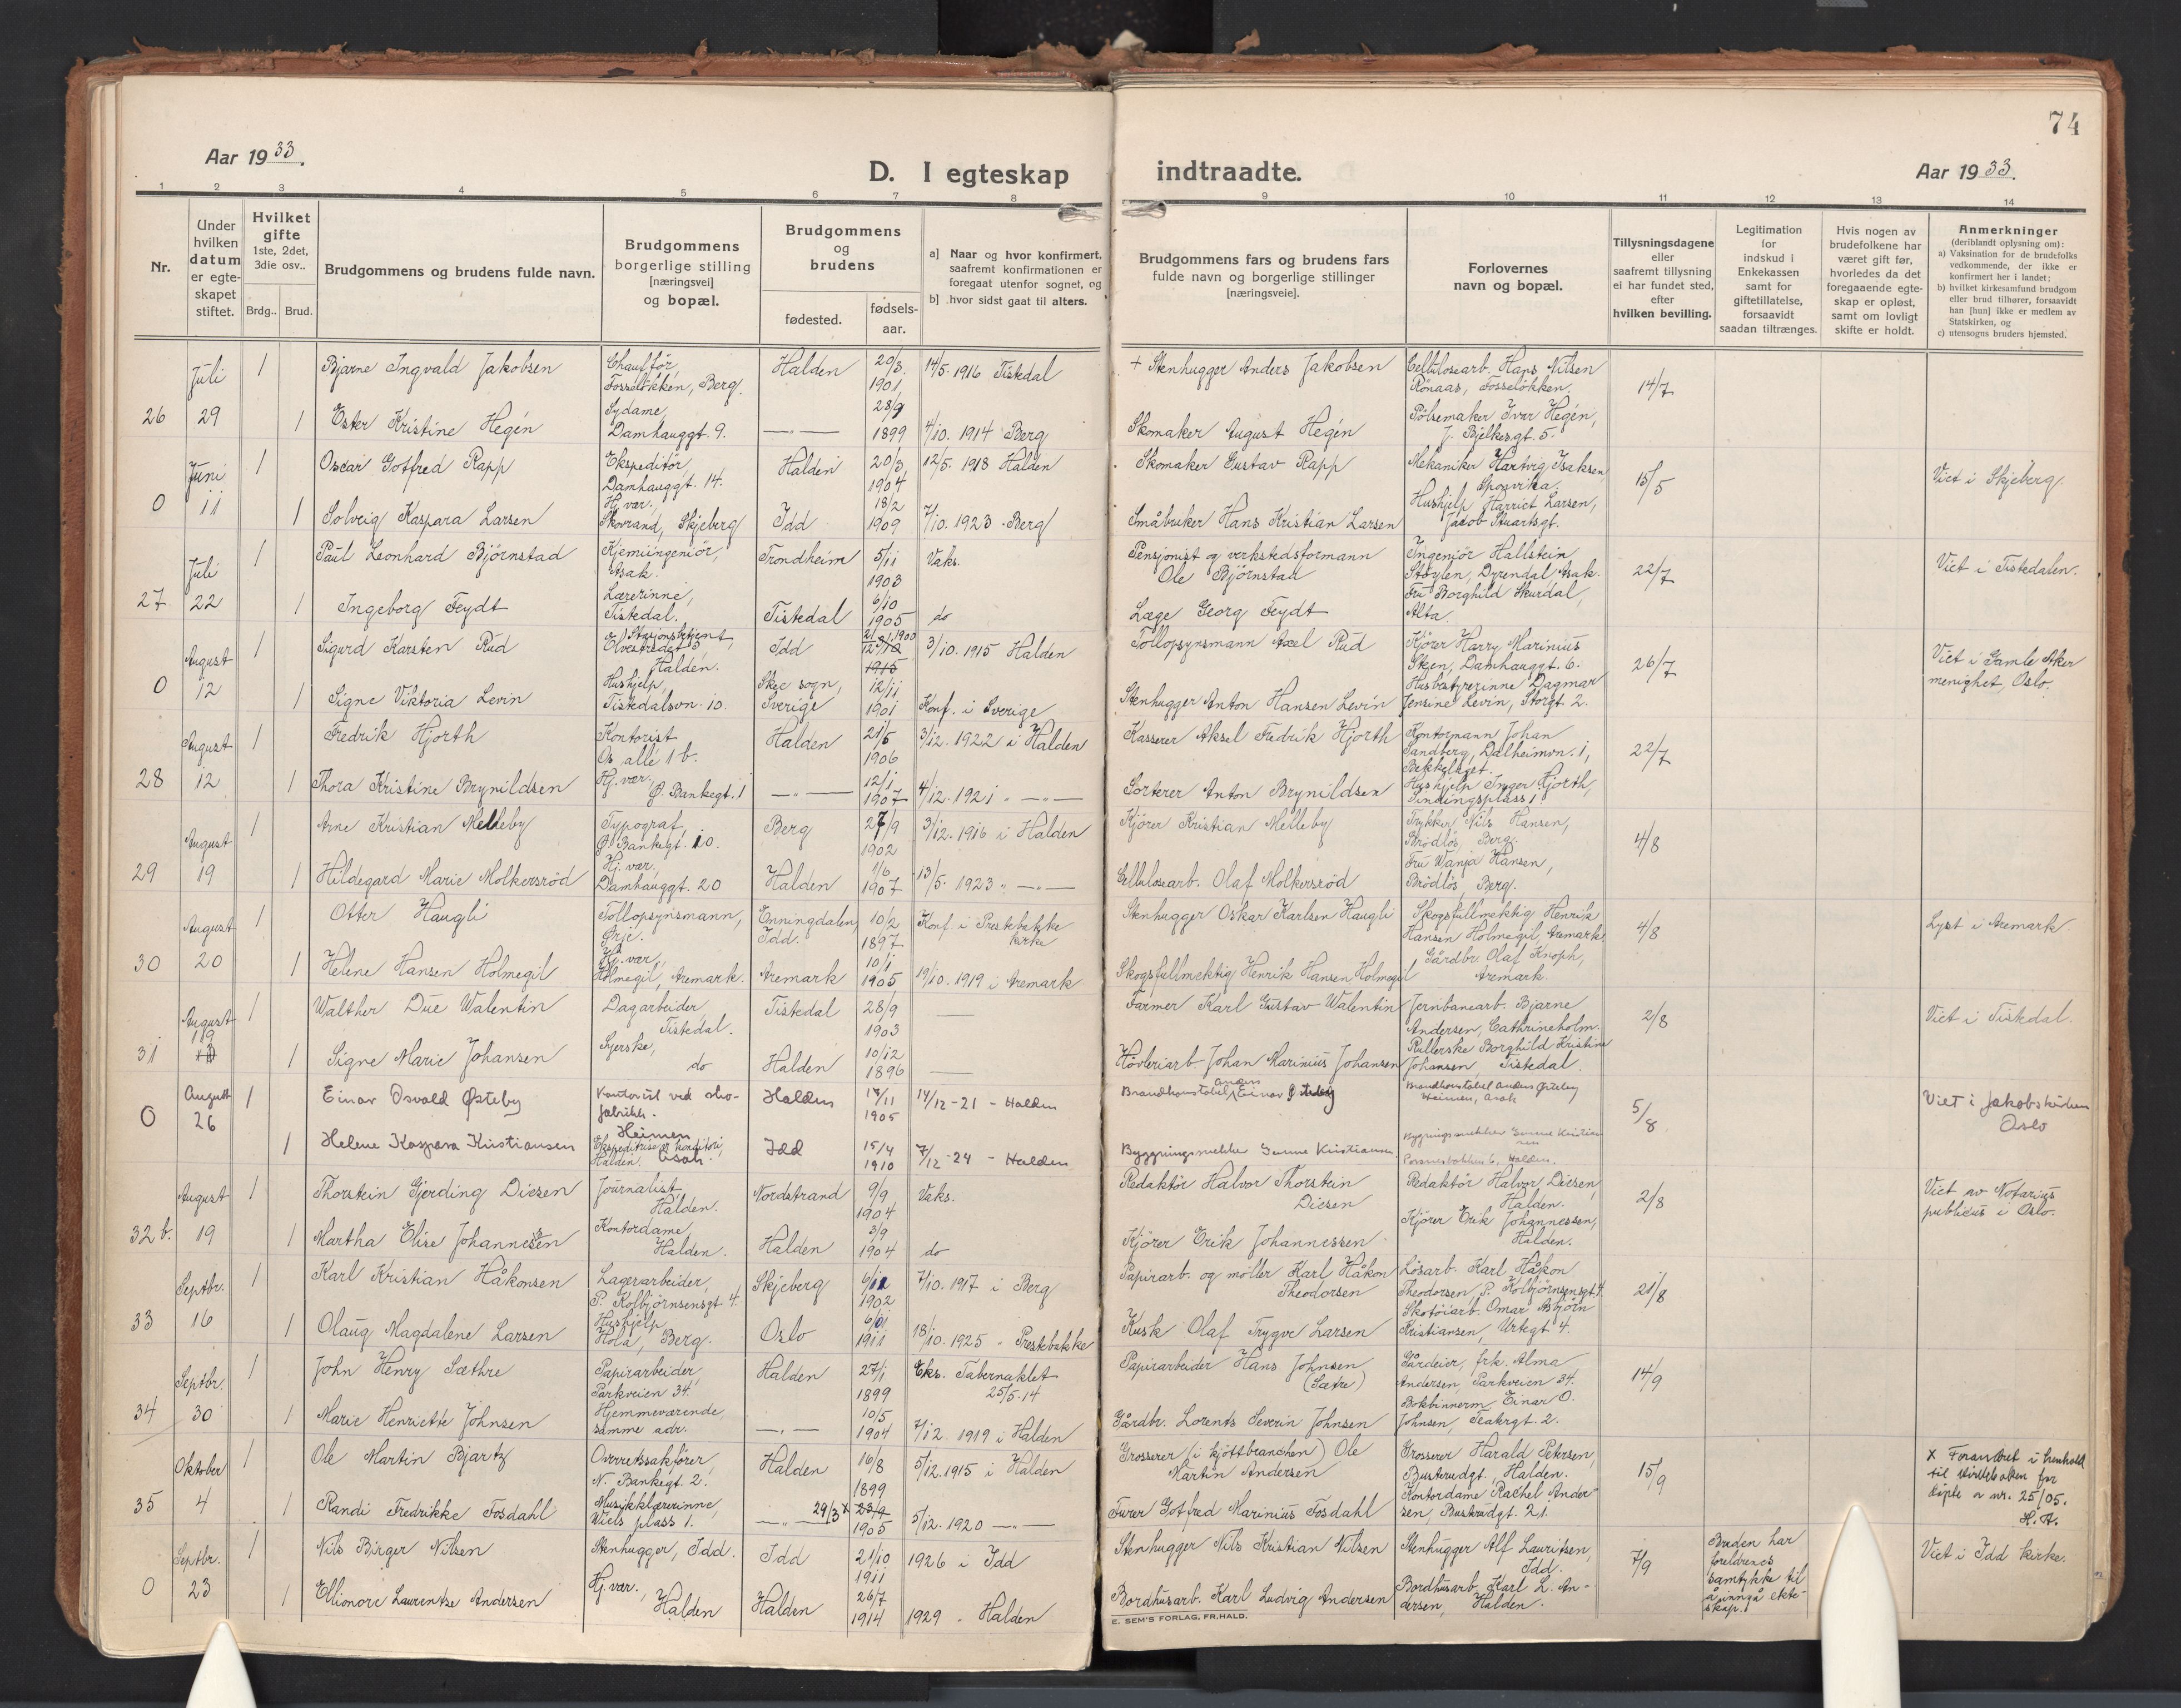 74
Aar 1933.
D. I egteskap indtraadte.
Aar 1933.
1 2 3 4 5 6 7 8 9 10 11 12 13 14
Nr.
Under hvilken datum er egteskapet stiftet.
Hvilket gifte 1ste, 2det, 3die osv..
Brdg.. Brud.
Brudgommens og brudens fulde navn.
Brudgommens borgerlige stilling [næringsvei] og bopæl.
Brudgommens og brudens
fødested.
fødselsaar.
a] Naar og hvor konfirmert, saafremt konfirmationen er foregaat utenfor sognet, og
b] hvor sidst gaat til alters.
Brudgommens fars og brudens fars fulde navn og borgerlige stillinger [næringsveie].
Forlovernes navn og bopæl.
Tillysningsdagene eller saafremt tillysning ei har fundet sted, efter hvilken bevilling.
Legitimation for indskud i Enkekassen samt for giftetillatelse, forsaavidt saadan tiltrænges.
Hvis nogen av brudefolkene har været gift før, hvorledes da det foregaaende egteskap er opløst, samt om lovligt skifte er holdt.
Anmerkninger (deriblandt oplysning om):
a) Vaksination for de brudefolks vedkommende, der ikke er konfirmert her i landet;
b) hvilket kirkesamfund brudgom eller brud tilhører, forsaavidt han [hun] ikke er medlem av Statskirken, og
c) utensogns bruders hjemsted.
26 Juli 29
1 Bjarne Ingvald Jakobsen Chauffør, Fosseløkken, Berg. Halden 20/3. 1901, 14/5. 1916 Tistedal + Stenhugger Anders Jakobsen Cellulosearb. Hans Nilsen Rönaas, Fosseløkken, 14/7
1 Ester Kristine Hegén Sydame, Damhauggt. 9. —"— 28/9 1899 4/10. 1914 Berg Skomaker August Hegén Pölsemaker Ivar Hegén, J. Bjelkesgt. 5.
0 Juni 11
1 Oscar Gotfred Rapp Ekspeditör, Damhauggt. 14. Halden 20/3, 1904 12/5. 1918 Halden Skomaker Gustav Rapp Mekaniker Hartvig Isaksen, Sponvika. 15/5 Viet i Skjeberg.
1 Solveig Kaspara Larsen Hj. vær., Skovrand, Skjeberg Idd 18/2 1909 7/10. 1923 - Berg Småbruker Hans Kristian Larsen Hushjelp Harriet Larsen, Jacob Stuartsgt.
27 Juli 22
1 Paul Leonhard Björnstad Kjemiingeniör, Asak. Trondheim 5/11 1903 Vaks. Pensjonist og verkstedsformann Ole Björnstad Ingeniör Hallstein Stöylen, Dyrendal, Asak. 22/7 Viet i Tistedalen.
1 Ingeborg Feydt Lærerinne, Tistedal. Tistedal 6/10 1905 do Læge Georg Feydt Fru Borghild Skurdal, Alta.
0 August 12
1 Sigurd Karsten Rud Stasjonsbetjent, Halden. Idd 1900 1915 3/10. 1915 Halden Tollopsynsmann Axel Rud Kjörer Harry Marinius Skjen, Damhauggt. 6. 26/7 Viet i Gamle Aker menighet, Oslo.
1 Signe Viktoria Levin Hushjelp, Tistedalsvn. 10. Skee sogn, Sverige 12/11 1901 Konf. i Sverige Stenhugger Anton Hansen Levin Husbestyrerinne Dagmar Jensine Levin, Storgt. 2.
28 August 12
1 Fredrik Hjorth Kontorist Os allé 1 b. Halden 21/5 1906 3/12. 1922 i Halden Kasserer Aksel Fredrik Hjorth Kontormann Johan Sandberg, Dalheimvn. 1, Bekkelaget. 22/7
1 Thora Kristine Brynildsen Hj. vær., Ø. Bankegt. 1 —"— 12/1 1907 4/12. 1921 " —"— Sorterer Anton Brynildsen Hushjelp Inger Hjorth, Sindingsplass 1
29 August 19
1 Arne Kristian Melleby Typograf, Ø. Bankegt. 10. Berg 27/9 1902 3/12. 1916 i Halden Kjörer Kristian Melleby Trykker Nils Hansen, Brödlös, Berg. 4/8
1 Hildegard Marie Molkersröd Hj. vær., Damhauggt. 20 Halden 1/6 1907 13/5. 1923 " —"— Cellulosearb. Olaf Molkersröd Fru Wanja Hansen, Brödlös, Berg.
30 August 20
1 Otter Haugli Tollopsynsmann, Ørje. Enningdalen, Idd. 10/2 1897 Konf. i Prestebakke kirke Stenhugger Oskar Karlsen Haugli Skogsfullmektig Henrik Hansen Holmegil, Aremark 4/8 Lyst i Aremark.
1 Helene Hansen Holmegil Hj. vær., Holmegil, Aremark. Aremark 10/1 1905 19/10. 1919 i Aremark Skogsfullmektig Henrik Hansen Holmegil Gårdbr. Olaf Knoph, Aremark.
31 August 19
1 Walther Due Walentin Dagarbeider, Tistedal. Tistedal 28/9 1903 — Farmer Karl Gustav Walentin Jernbanearb. Bjarne Andersen, Cathrineholm. 2/8 Viet i Tistedal.
1 Signe Marie Johansen Syerske, do Halden 10/12 1896 — Høvleriarb. Johan Marinius Johansen Rullerske Borghild Kristine Johansen, Tistedal.
0 August 26
1 Einar Osvald Østeby Kontorist ved skofabrikk. Halden 1905 14/12-21 - Halden Brandkonstabel Anders Einar Østeby Brandkonstabel Anders Østeby Heimen, Asak 5/8 Viet i Jakobskirken Oslo
1 Helene Kaspara Kristiansen Heimen Asak. Ekspeditrise i konditori, Halden. Idd 15/4 1910 7/12-24 - Halden Byggningssnekker Gunne Kristiansen Byggningssnekker Gunne Kristiansen Halden.
32 b. August 19
1 Thorstein Gjerding Diesen Journalist, Halden. Nordstrand 9/9 1904 Vaks. Redaktör Halvor Thorstein Diesen Redaktör Halvor Diesen, Halden. 2/8 Viet av Notarius publicus i Oslo.
1 Martha Elise Johannessen Kontordame, Halden. Halden 3/9 1904 do Kjörer Erik Johannessen Kjörer Erik Johannessen, Halden.
33 Septbr. 16
1 Karl Kristian Håkonsen Lagerarbeider, P. Kolbjörnsensgt. 4. Skjeberg 1902 7/10. 1917 i Berg Papirarb. og möller Karl Håkon Theodorsen Lösarb. Karl Håkon Theodorsen, P. Kolbjörnsensgt. 4. 21/8
1 Olaug Magdalene Larsen Hushjelp, Hola, Berg. Oslo 1911 18/10. 1925 " Prestebakke Kusk Olaf Trygve Larsen Skotöiarb. Omar Asbjörn Kristiansen, Urtegt 4.
34 Septbr. 30
1 John Henry Sæthre Papirarbeider, Parkveien 34. Halden 27/1 1899 Eks. Tabernaklet 25/5.14 Papirarbeider Hans Johnsen (Sætre) Gårdeier, frk. Alma Andersen, Parkveien 34. 14/9
1 Marie Henriette Johnsen Hjemmeværende, samme adr. —"— 10/5 1904 7/12. 1919 i Halden Gårdbr. Lorents Severin Johnsen Bokbinnerm. Einar O. Johnsen, Teatergt. 2.
35 Oktober 4
1 Ole Martin Bjartz Overrettssakförer, N. Bankegt 2. Halden 16/8 1899 5/12. 1915 i Halden Grosserer (i kjöttbranchen) Ole Martin Andersen Grosserer Harald Petersen, Busterudgt., Halden. 15/9 x Forandret i henhold til kirkeboken for döpte a nr. 25/05. H. A.
1 Randi Fredrikke Fosdahl Musikklærerinne, Wiels plass 1. —"— 29/3 x 23/9 1905 5/12. 1920 —"— Furer Gotfred Marinius Fosdahl Kontordame Rachel Andersen, Busterudgt. 21.
0 Septbr. 23
1 Nils Birger Nilsen Stenhugger, Idd. Idd 21/10 1911 1926 i Idd Stenhugger Nils Kristian Nilsen Stenhugger Alf Lauritsen, Idd. 7/9 Bruden har foreldrenes samtykke til å inngå ekteskap. Viet i Idd kirke.
1 Ellionore Laurentse Andersen Hj. vær., Halden Halden 26/7 1914 1929 - Halden Bordhusarb. Karl Ludvig Andersen Bordhusarb. Karl L. Andersen, Halden.
E. SEM'S FORLAG, FR.HALD.